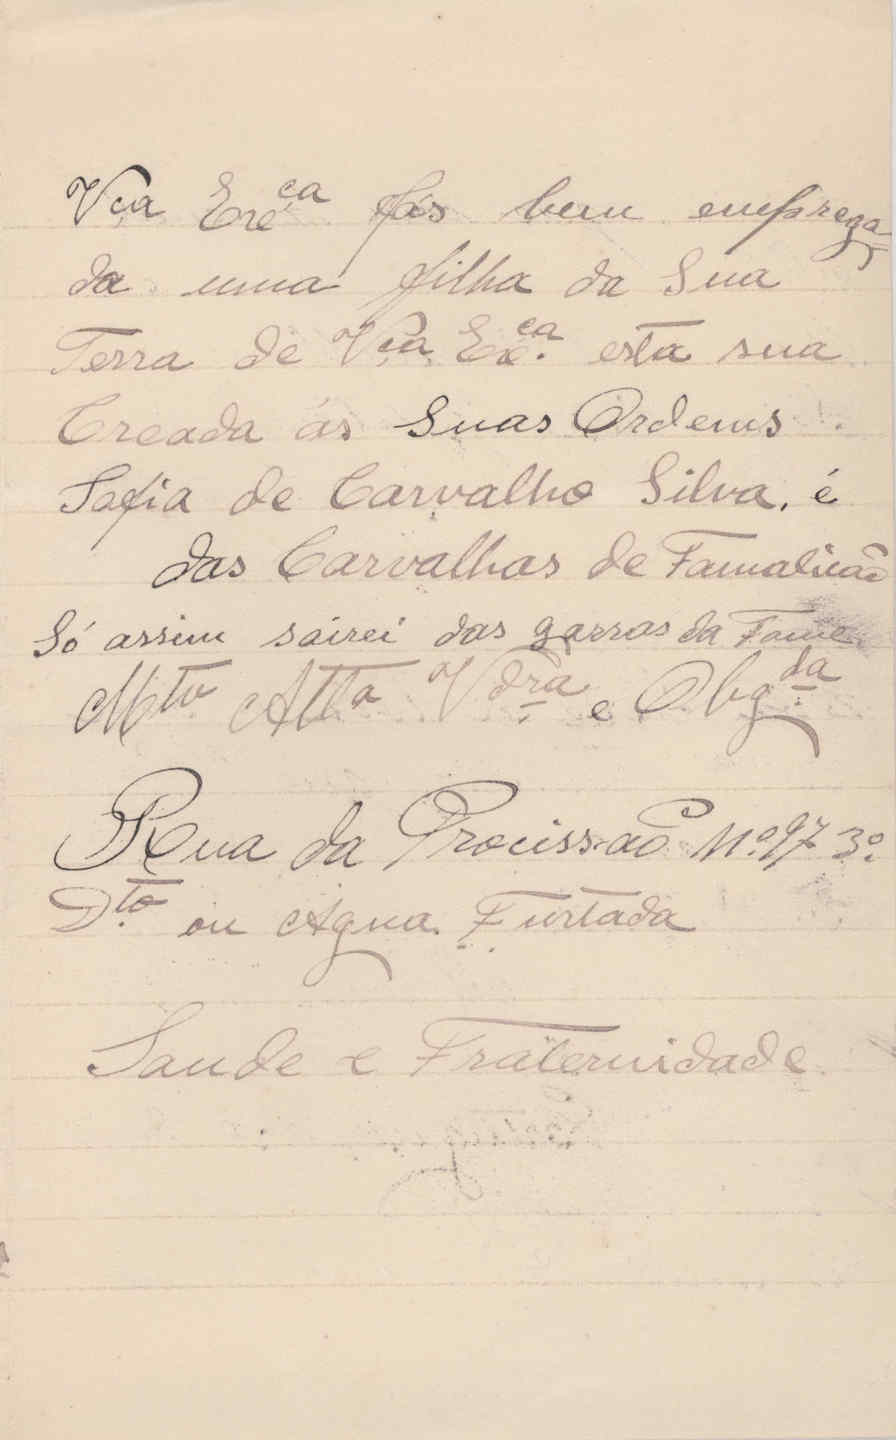 Vça Exe.ça fás bem emprega
da uma filha da Sua
Terra de Vça Exe.ça esta sua
Creada ás Suas Ordems.
Sofia de Carvalho Silva, é
das Carvalhas de Famalicão
Só assim sairei das garras da Fome.
Mto Atta Vdra e Obg.da
Rua da Procissão Nº 97 3º
D.to ou Agua Furtada
Saude e Fraternidade